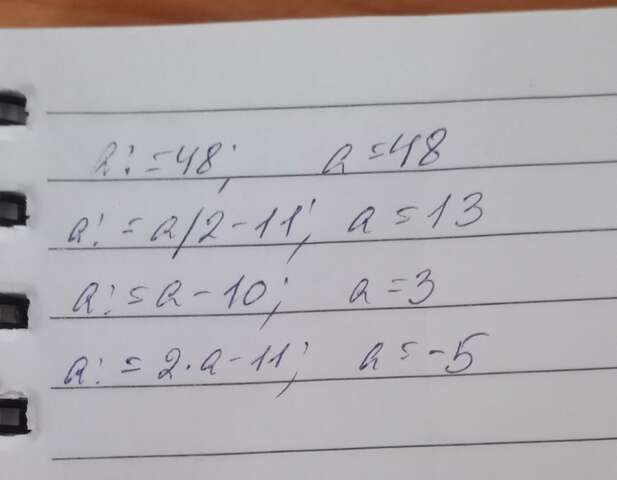 a:=48; a=48
a:=a/2-11; a=13
a:=a-10; a=3
a:=2·a-11; a=-5